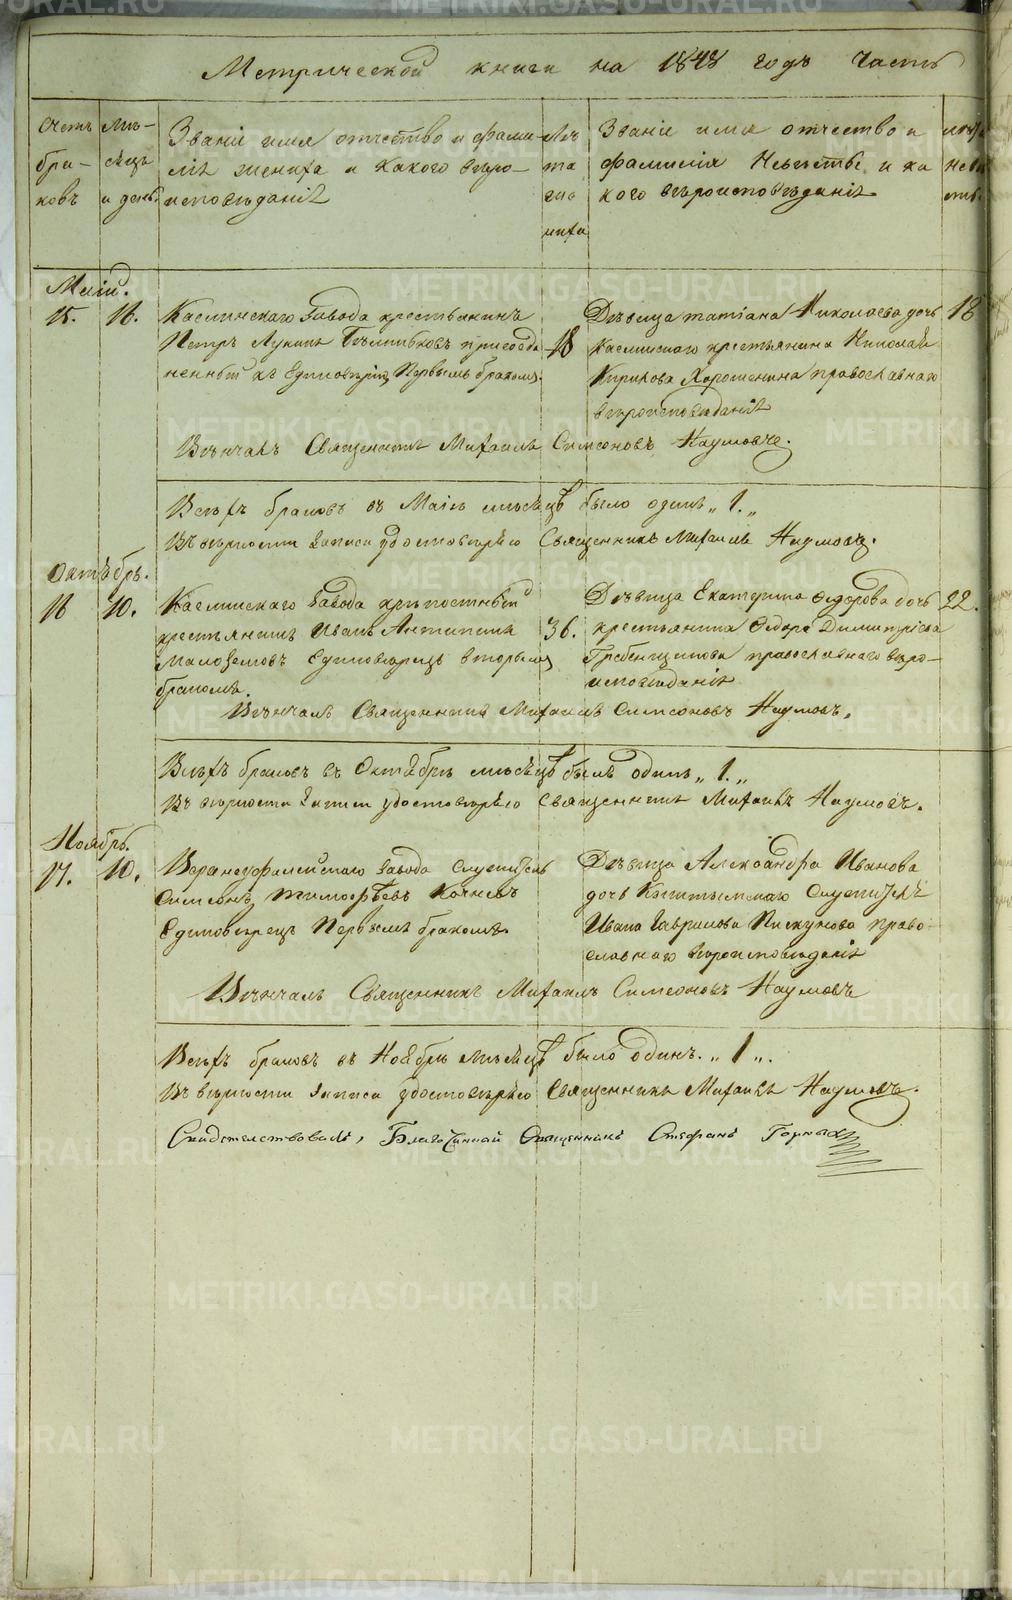 Метрической книги на 1848 годъ часть
Счетъ бра- ковъ
мѣ- сѣцъ и день.
Званіе имя отчество и фами-
лія жениха и какого вѣро-
исповѣданія
Лѣ та жени ниха
Званіе имя отчество и
фамилія Невѣсты и ка
кого вѣроисповѣданія
Маій.
15. 16. Каслинскаго Завода крестьянинъ
Петръ Лукинъ присоеди
ненный къ Единовѣрію, Первымъ бракомъ.
18
Дѣвица Татіана Николаева дочь
Каслинскаго крестьянина Николая
Кирилова Хорошенина православнаго
вѣроисповѣданія
18
Вѣнчалъ Священникъ Михаилъ Симеоновъ Наумовъ.
Всѣхъ браковъ въ Маіѣ мѣсяцѣ было одинъ „1.„
Въ вѣрности записи удостовѣряю Священникъ Михаилъ Наумовъ.
Октябрь.
16 10. Каслинскаго Завода крѣпостный
крестьянинъ Иванъ Антипинъ
Малоземовъ Единовѣрецъ вторымъ
бракомъ.
36.
Дѣвица Екатерина Ѳедорова дочь
крестьянина Ѳедора Димитріева
Гребенщикова православнаго вѣро-
исповѣданія
22.
Вѣнчалъ Священникъ Михаилъ Симеоновъ Наумовъ.
Всѣхъ браковъ въ Октябрѣ мѣсяцѣ былъ одинъ „1.„
Въ вѣрности записи удостовѣряю Священникъ Михаилъ Наумовъ.
Ноябрь.
17. 10. Верхнеуфалейскаго Завода служитель
Симеонъ Тимофѣевъ Кочневъ
Единовѣрецъ Первымъ бракомъ.
Дѣвица Александра Иванова
дочь Кыштымскаго служителя
Ивана Гаврилова Пискунова право-
славнаго вѣроисповѣданія
Вѣнчалъ Священникъ Михаилъ Симеоновъ Наумовъ
Всѣхъ браковъ въ Ноябрѣ мѣсяцѣ было одинъ. „1„.
Въ вѣрности записи удостовѣряю Священникъ Михаилъ Наумовъ.
Свидетельствовалъ, Благочинный Священникъ Стефанъ
METRIKI.GASO-URAL.RU